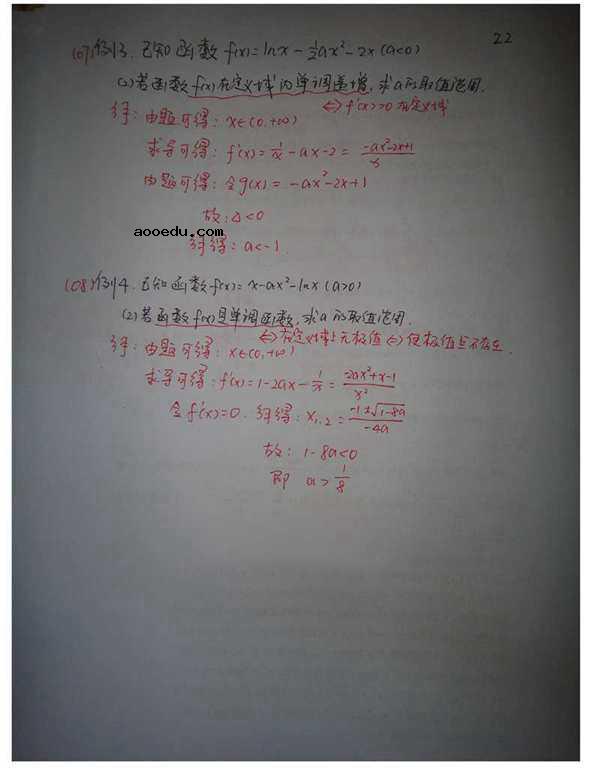 22
(07)例13. 已知函数f(x)=lnx-½ax²-2x(a<0)
(2)若函数f(x)在定义域内单调递增,求a的取值范围.
⇔f'(x)>0在定义域
解:由题可得:x∈(0,+∞)
求导可得:f'(x)=1/x-ax-2=(-ax²-2x+1)/x
由题可得:令g(x)=-ax²-2x+1
故:Δ<0
aooedu.com
解得:a<-1
(08)例14. 已知函数f(x)=x-ax²-lnx(a>0)
(2)若函数f(x)是单调函数,求a的取值范围.
⇔在定义域上无极值⇔但极值点不存在.
解:由题可得:x∈(0,+∞)
求导可得:f'(x)=1-2ax-1/x=(2ax²+x-1)/x²
令f'(x)=0.解得:x₁,₂=(-1±√(1-8a))/(-4a)
故:1-8a<0
即 a>1/8